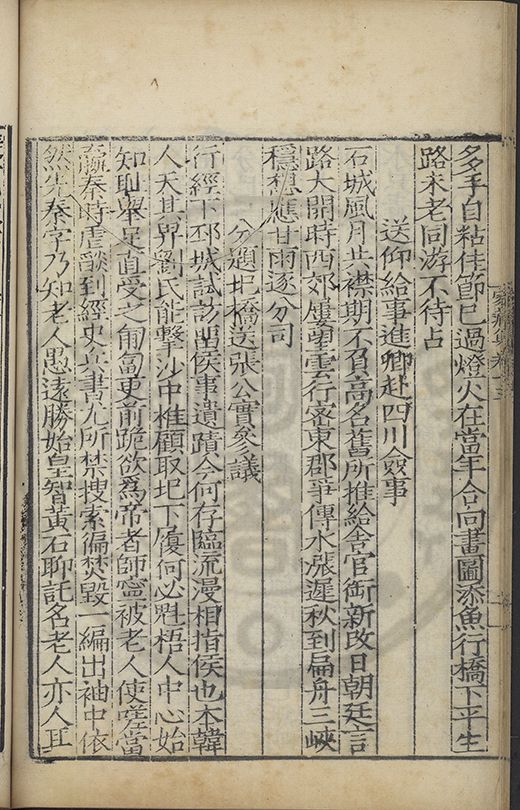 多手自粘佳節已過燈火在當年合向畫圖添魚行橋下平生
路未老同游不待占
送仰給事進卿赴四川僉事
石城風月共襟期不負高名舊所推給舍官銜新改日朝廷言
路大開時西郊屢望雲行密東郡爭傳水漲遲秋到扁舟三峽
穩想應甘雨逐分司
分題圯橋送張公實參議
行經下邳城試訪留侯事遺蹟今何存臨流漫相指侯也本韓
人天其畀劉氏能擊沙中椎顧取圯下履何必魁梧人中心始
知恥舉足直受之匍匐更前跪欲爲帝者師寧被老人使嗟當
嬴秦時虐燄到經史兵書尤所禁搜索徧焚毀一編出袖中依
然先秦字乃知老人愚遠勝始皇智黃石聊託名老人亦人耳